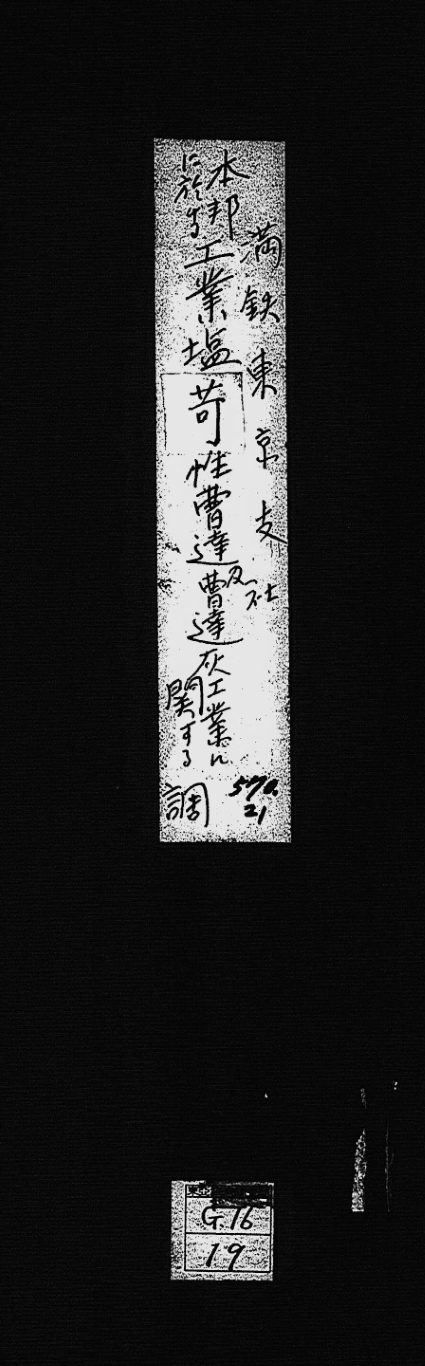 満鉄東京支社
本邦に於ける工業塩苛性曹達及曹達灰工業に関する調
570.
21
G.16
19